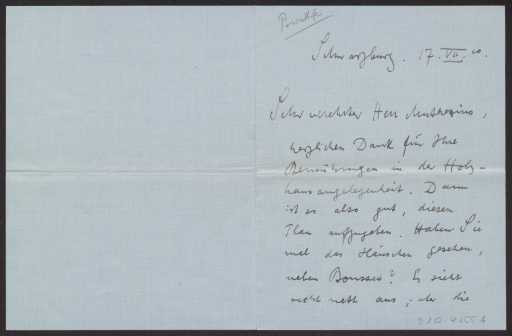 Schwarzburg. 17. VII. 20.
Sehr verehrter Herr Muthesius,
herzlichen Dank für Ihre
Bemühungen in der Holz-
hausangelegenheit. Dann
ist es also gut, diesen
Plan aufzugeben. Haben Sie
mal das Häuschen gesehen,
neben ? Es sieht
recht nett aus, aber die